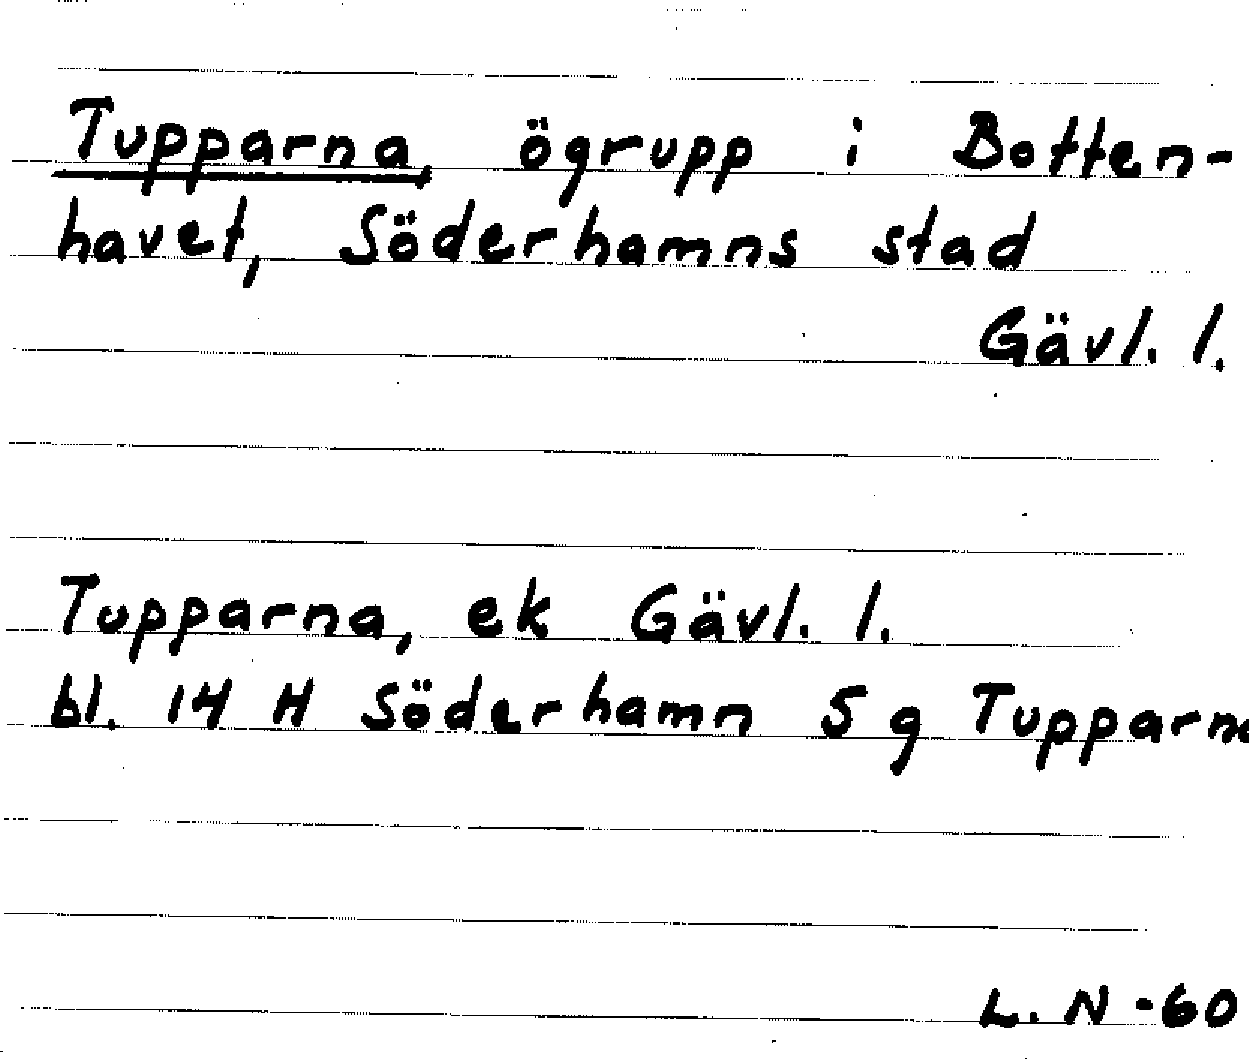 Tupparna, ögrupp i Botten-
havet, Söderhamns stad
Gävl. l.
Tupparna, ek Gävl. l.
bl. 14 H Söderhamn 5 g Tupparna
L. N -60